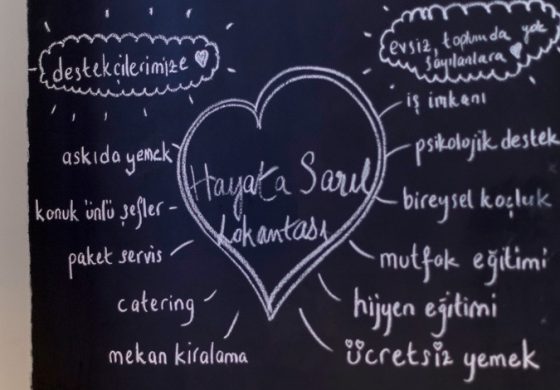 destekçilerimize
evsiz, toplumda yok
sayılanlara
askıda yemek
konuk ünlü şefler
paket servis
catering
mekan kiralama
Hayata Sarıl
Lokantası
iş imkanı
psikolojik destek
bireysel koçluk
mutfak eğitimi
hijyen eğitimi
ücretsiz yemek